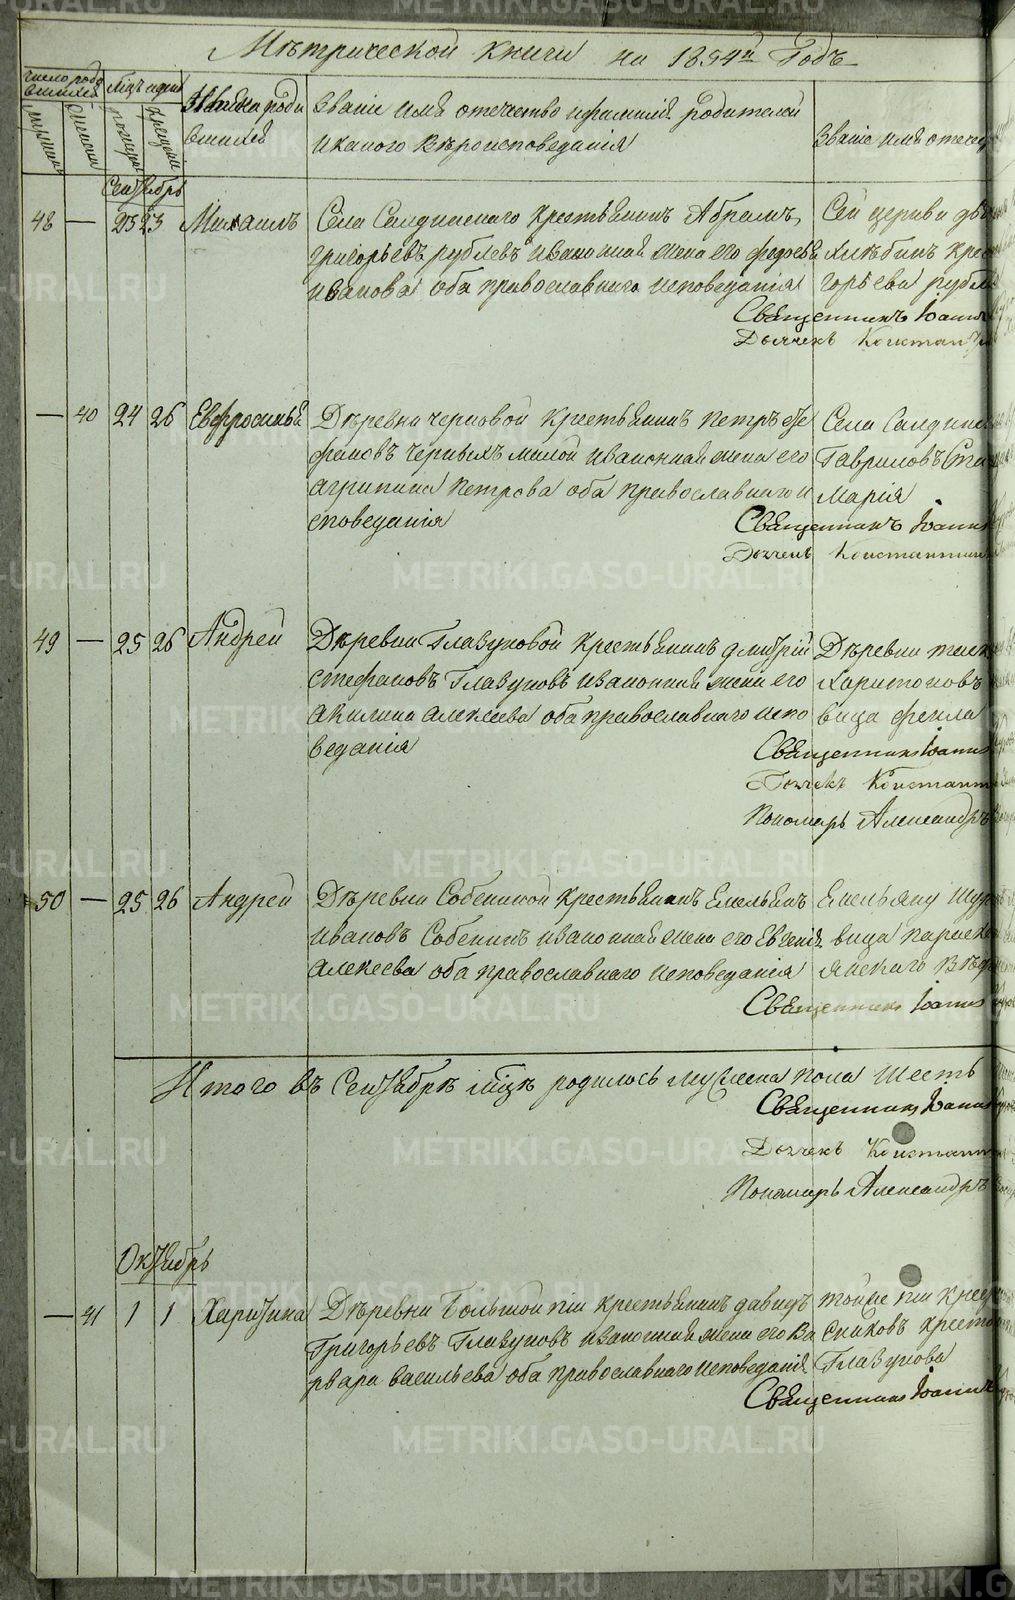 Метрической книги на 1854й Годъ
число родившихся
мсцъ и дни
Имена родившихся
Званіе имя отечество и фамилія родителей
и какого вероисповеданія
Званіе имя отечес
Сентябрь
48 — 23 23 Михаилъ
Села Салдинскаго крестьянинъ Абрамъ
григорьевъ рублевъ и законная жена его федосья
иванова оба православнаго исповеданія
Сей церкви
горьева рубл
Священникъ Іоаннъ
Дьячекъ Констан
— 40 24 26 Евфросинья
Деревни черновой крестьянинъ петръ
черныхъ и законная жена его
агрипина Петрова оба православнаго и
споведанія
Села Салдинс
Гавриловъ
Марія
Священникъ Іоанн
Дьячекъ Константин
49 — 25 26 Андрей
Деревни Глазуновой крестьянинъ дмитрій
стефановъ Глазуновъ и законная жена его
акилина алексеева оба православнаго испо
веданія
Деревни
Харитоновъ
вица фекла
Священникъ Іоанн
Дьячекъ Констант
Пономарь Александръ
50 — 25 26 Андрей
Деревни Собениной крестьянинъ Емельянъ
ивановъ Собенинъ и законная жена его Евгенія
алексеева оба православнаго исповеданія
Емельяну
вица параске
Священникъ Іоанн
Итого въ Сентябрѣ мцѣ родилось мужеска пола шесть
Священникъ Іоанн
Дьячекъ Констант
Пономарь Александръ
Октябрь
— 41 1 1 Харитина
Деревни Большой піи крестьянинъ давидъ
Григорьевъ Глазуновъ и законная жена его Ва
рвара васильева оба православнаго исповеданія
тойже піи крес
Глазунова
Священникъ Іоанн
METRIKI.GASO-URAL.RU